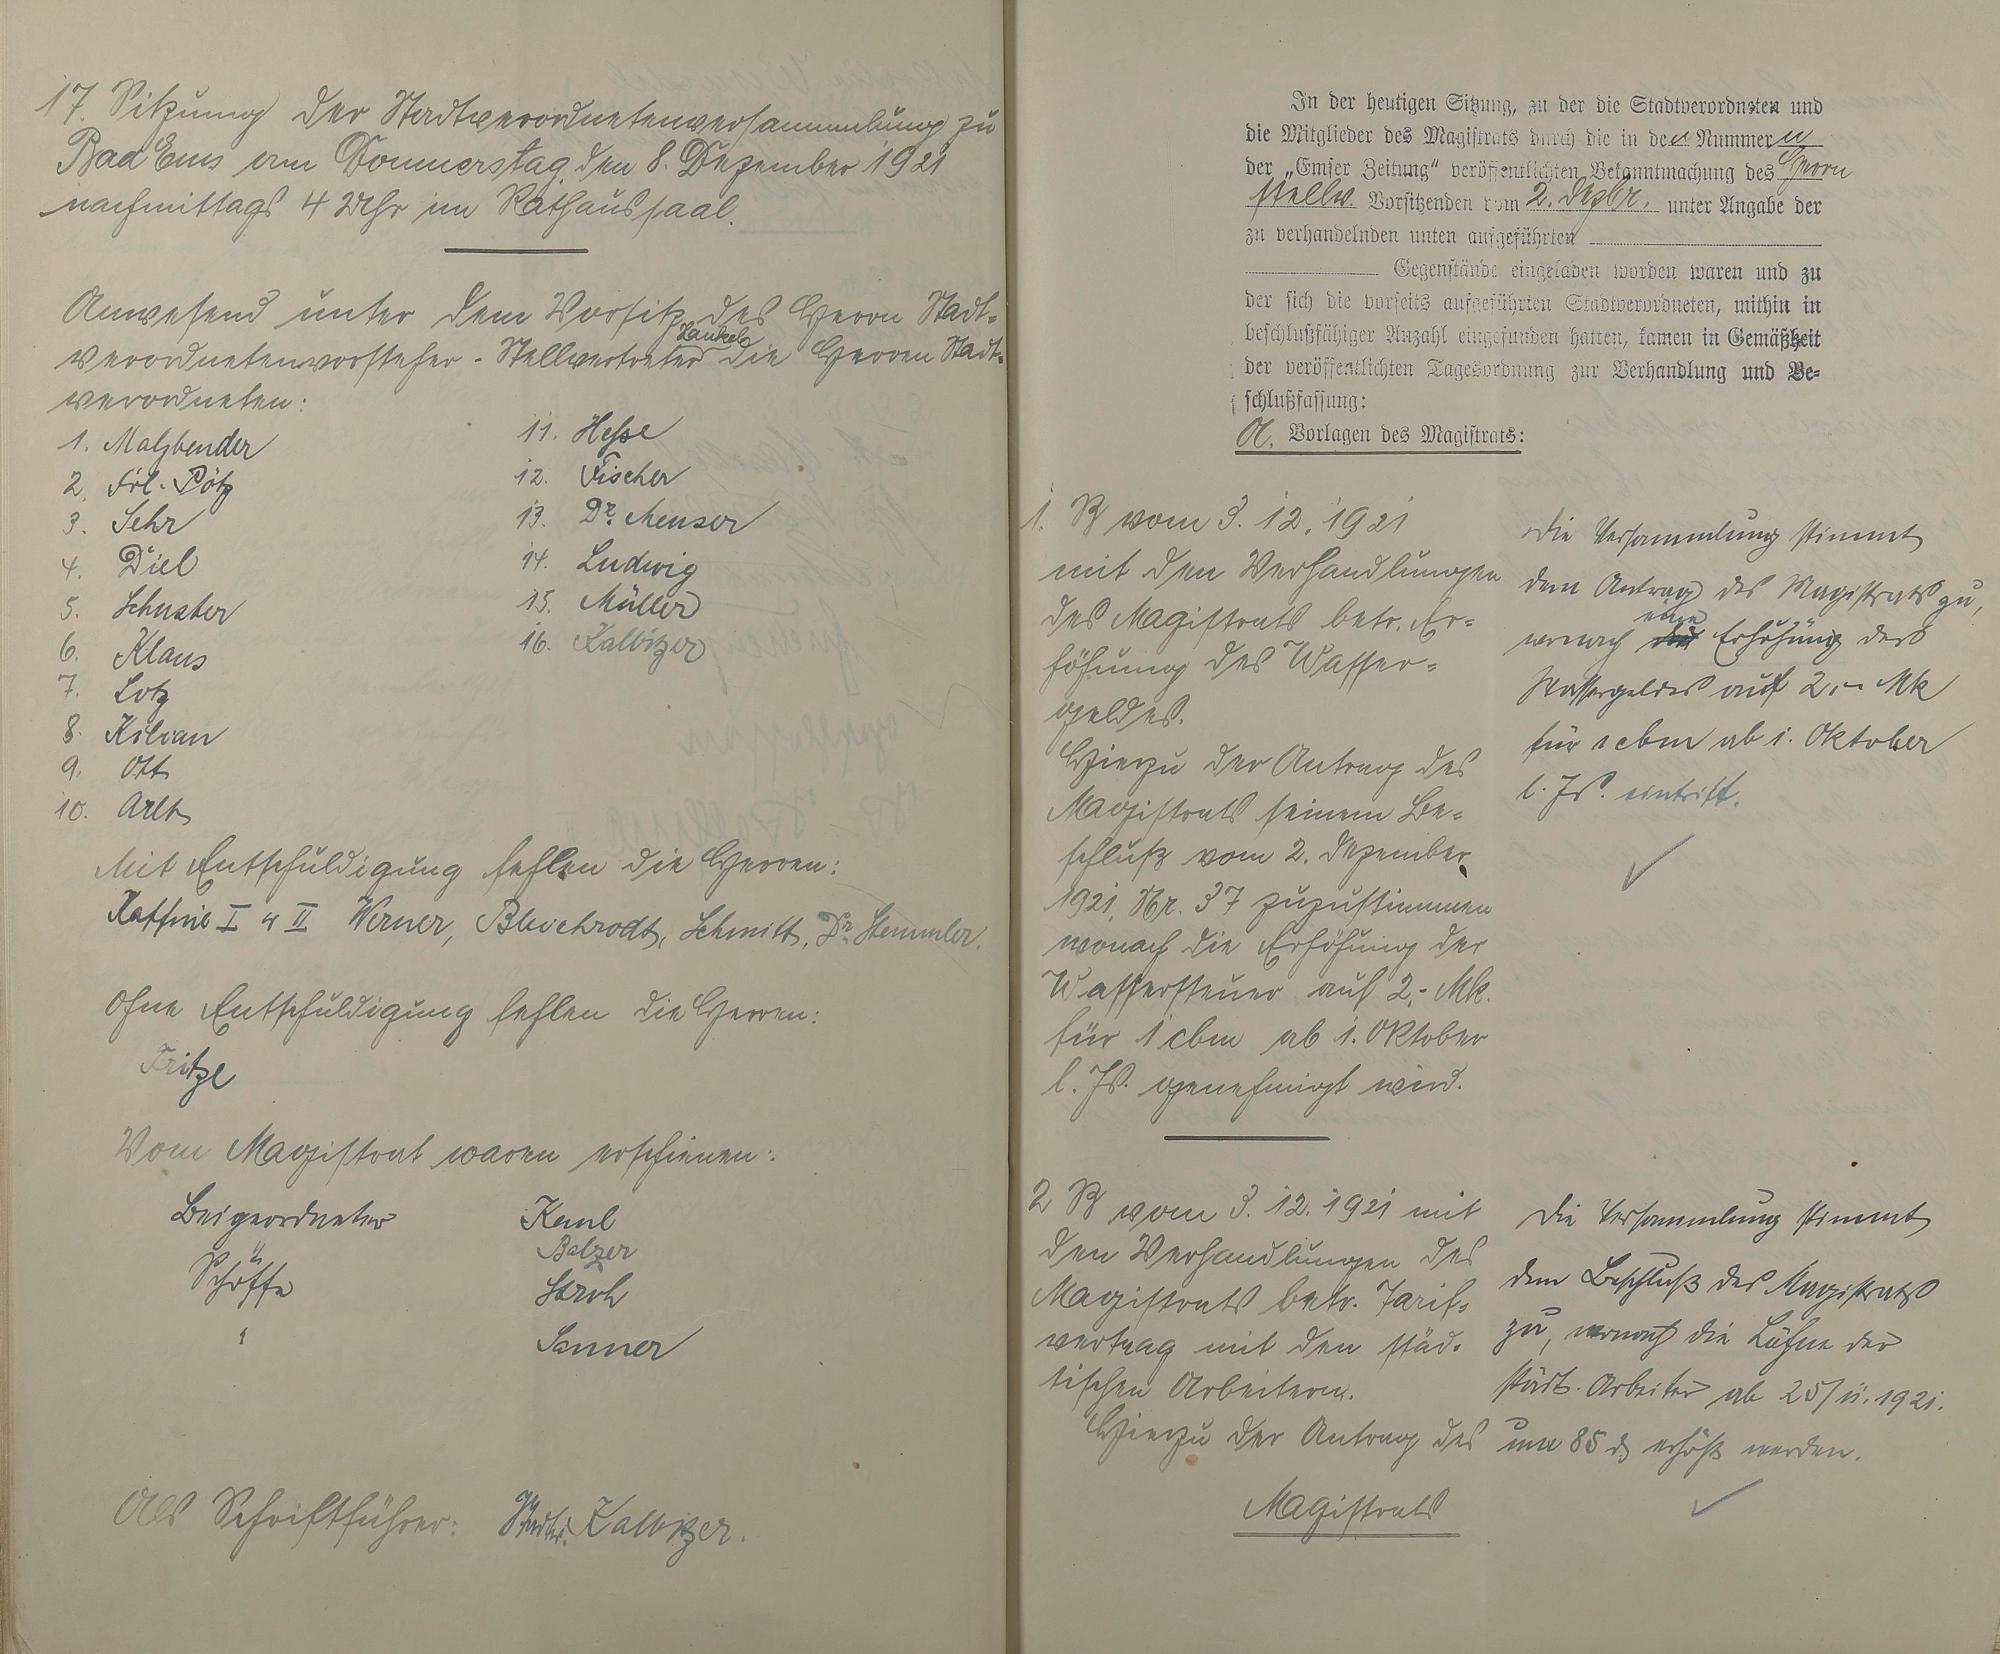 17. Sitzung der Stadtverordnetenversammlung zu
Bad Ems am Donnerstag, den 8. Dezember 1921
nachmittags 4 Uhr im Rathaussaal.
Anwesend unter dem Vorsitz des Herrn Stadt-
verordnetenvorsteher-Stellvertreter die Herren Stadt-
verordneten:
1. Malzbender
2. Frl. Pötz
3. Sehr
4. Diel
5. Schuster
6. Klaus
7. Lotz
8. Kilian
9. Ott
10. Arlt
11. Hesse
12. Fischer
13. Dr. Meuser
14. Ludwig
15. Müller
16. Kalbitzer
Mit Entschuldigung fehlen die Herren:
I u II Werner, Schmitt, Dr. Stemmler.
Ohne Entschuldigung fehlen die Herren:
Fritze
Vom Magistrat waren erschienen:
Beigeordneter Kaul
Balzer
Schöffe Stroh
" Sanner
Als Schriftführer: Kalbitzer.
In der heutigen Sitzung, zu der die Stadtverordneten und
die Mitglieder des Magistrats durch die in den Nummern
der „Emser Zeitung“ veröffentlichten Bekanntmachung des Herrn
stellv. Vorsitzenden vom 2. Dezbr. unter Angabe der
zu verhandelnden unten aufgeführten
Gegenstände eingeladen worden waren und zu
der sich die vorseits aufgeführten Stadtverordneten, mithin in
beschlußfähiger Anzahl eingefunden hatten, kamen in Gemäßheit
der veröffentlichten Tagesordnung zur Verhandlung und Be-
schlußfassung:
A. Vorlagen des Magistrats:
1. B vom 3. 12. 1921
mit den Verhandlungen
des Magistrats betr. Er-
höhung des Wasser-
geldes.
Hierzu der Antrag des
Magistrats seinem Be-
schluß vom 2. Dezember
1921, Nr. 37 zuzustimmen
wonach die Erhöhung der
Wassersteuer auf 2,- Mk.
für 1 cbm ab 1. Oktober
l. Js. genehmigt wird.
Die Versammlung stimmt
dem Antrag des Magistrats zu,
wonach eine Erhöhung des
Wassergeldes auf 2,- Mk
für 1 cbm ab 1. Oktober
l. Js. eintritt.
2 B vom 3. 12. 1921 mit
den Verhandlungen des
Magistrats betr. Tarif-
vertrag mit den städ-
tischen Arbeitern.
Hierzu der Antrag des
Magistrats
Die Versammlung stimmt
dem Beschluß des Magistrats
zu, wonach die Löhne der
städt. Arbeiter ab 25/11. 1921.
um 85 erhöht werden.